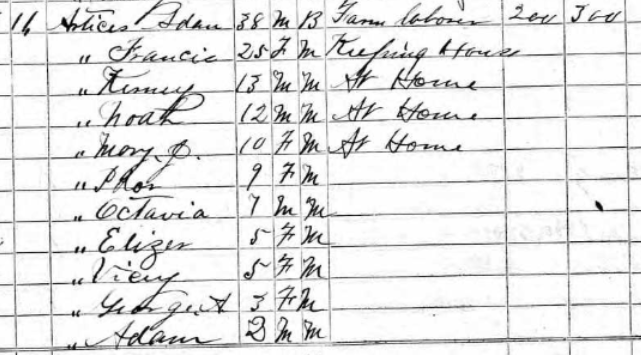 16 Artices Adam 38 M B Farm laborer 200 300
" Francis 25 F M Keeping House
" 13 M M At Home
" Noah 12 M M At Home
" Mary J. 10 F M At Home
" 9 F M
" Octavia 7 M M
" Elizer 5 F M
" Vicy 5 F M
" George A 3 F M
" Adam 2 M M